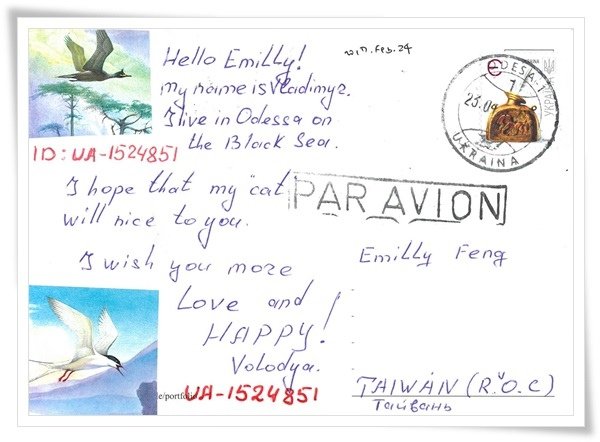 Hello Emilly!
my name is Vladimyr.
I live in Odessa on
the Black Sea.
ID: UA-1524851
I hope that my "cat"
will nice to you.
I wish you more
Love and
HAPPY!
Volodya.
UA-1524851
le/portfolio
Feb. 24
ODESA-1
23.09
UKRAINA
PAR AVION
Emilly Feng
TAIWAN (R.O.C)
Тайвань